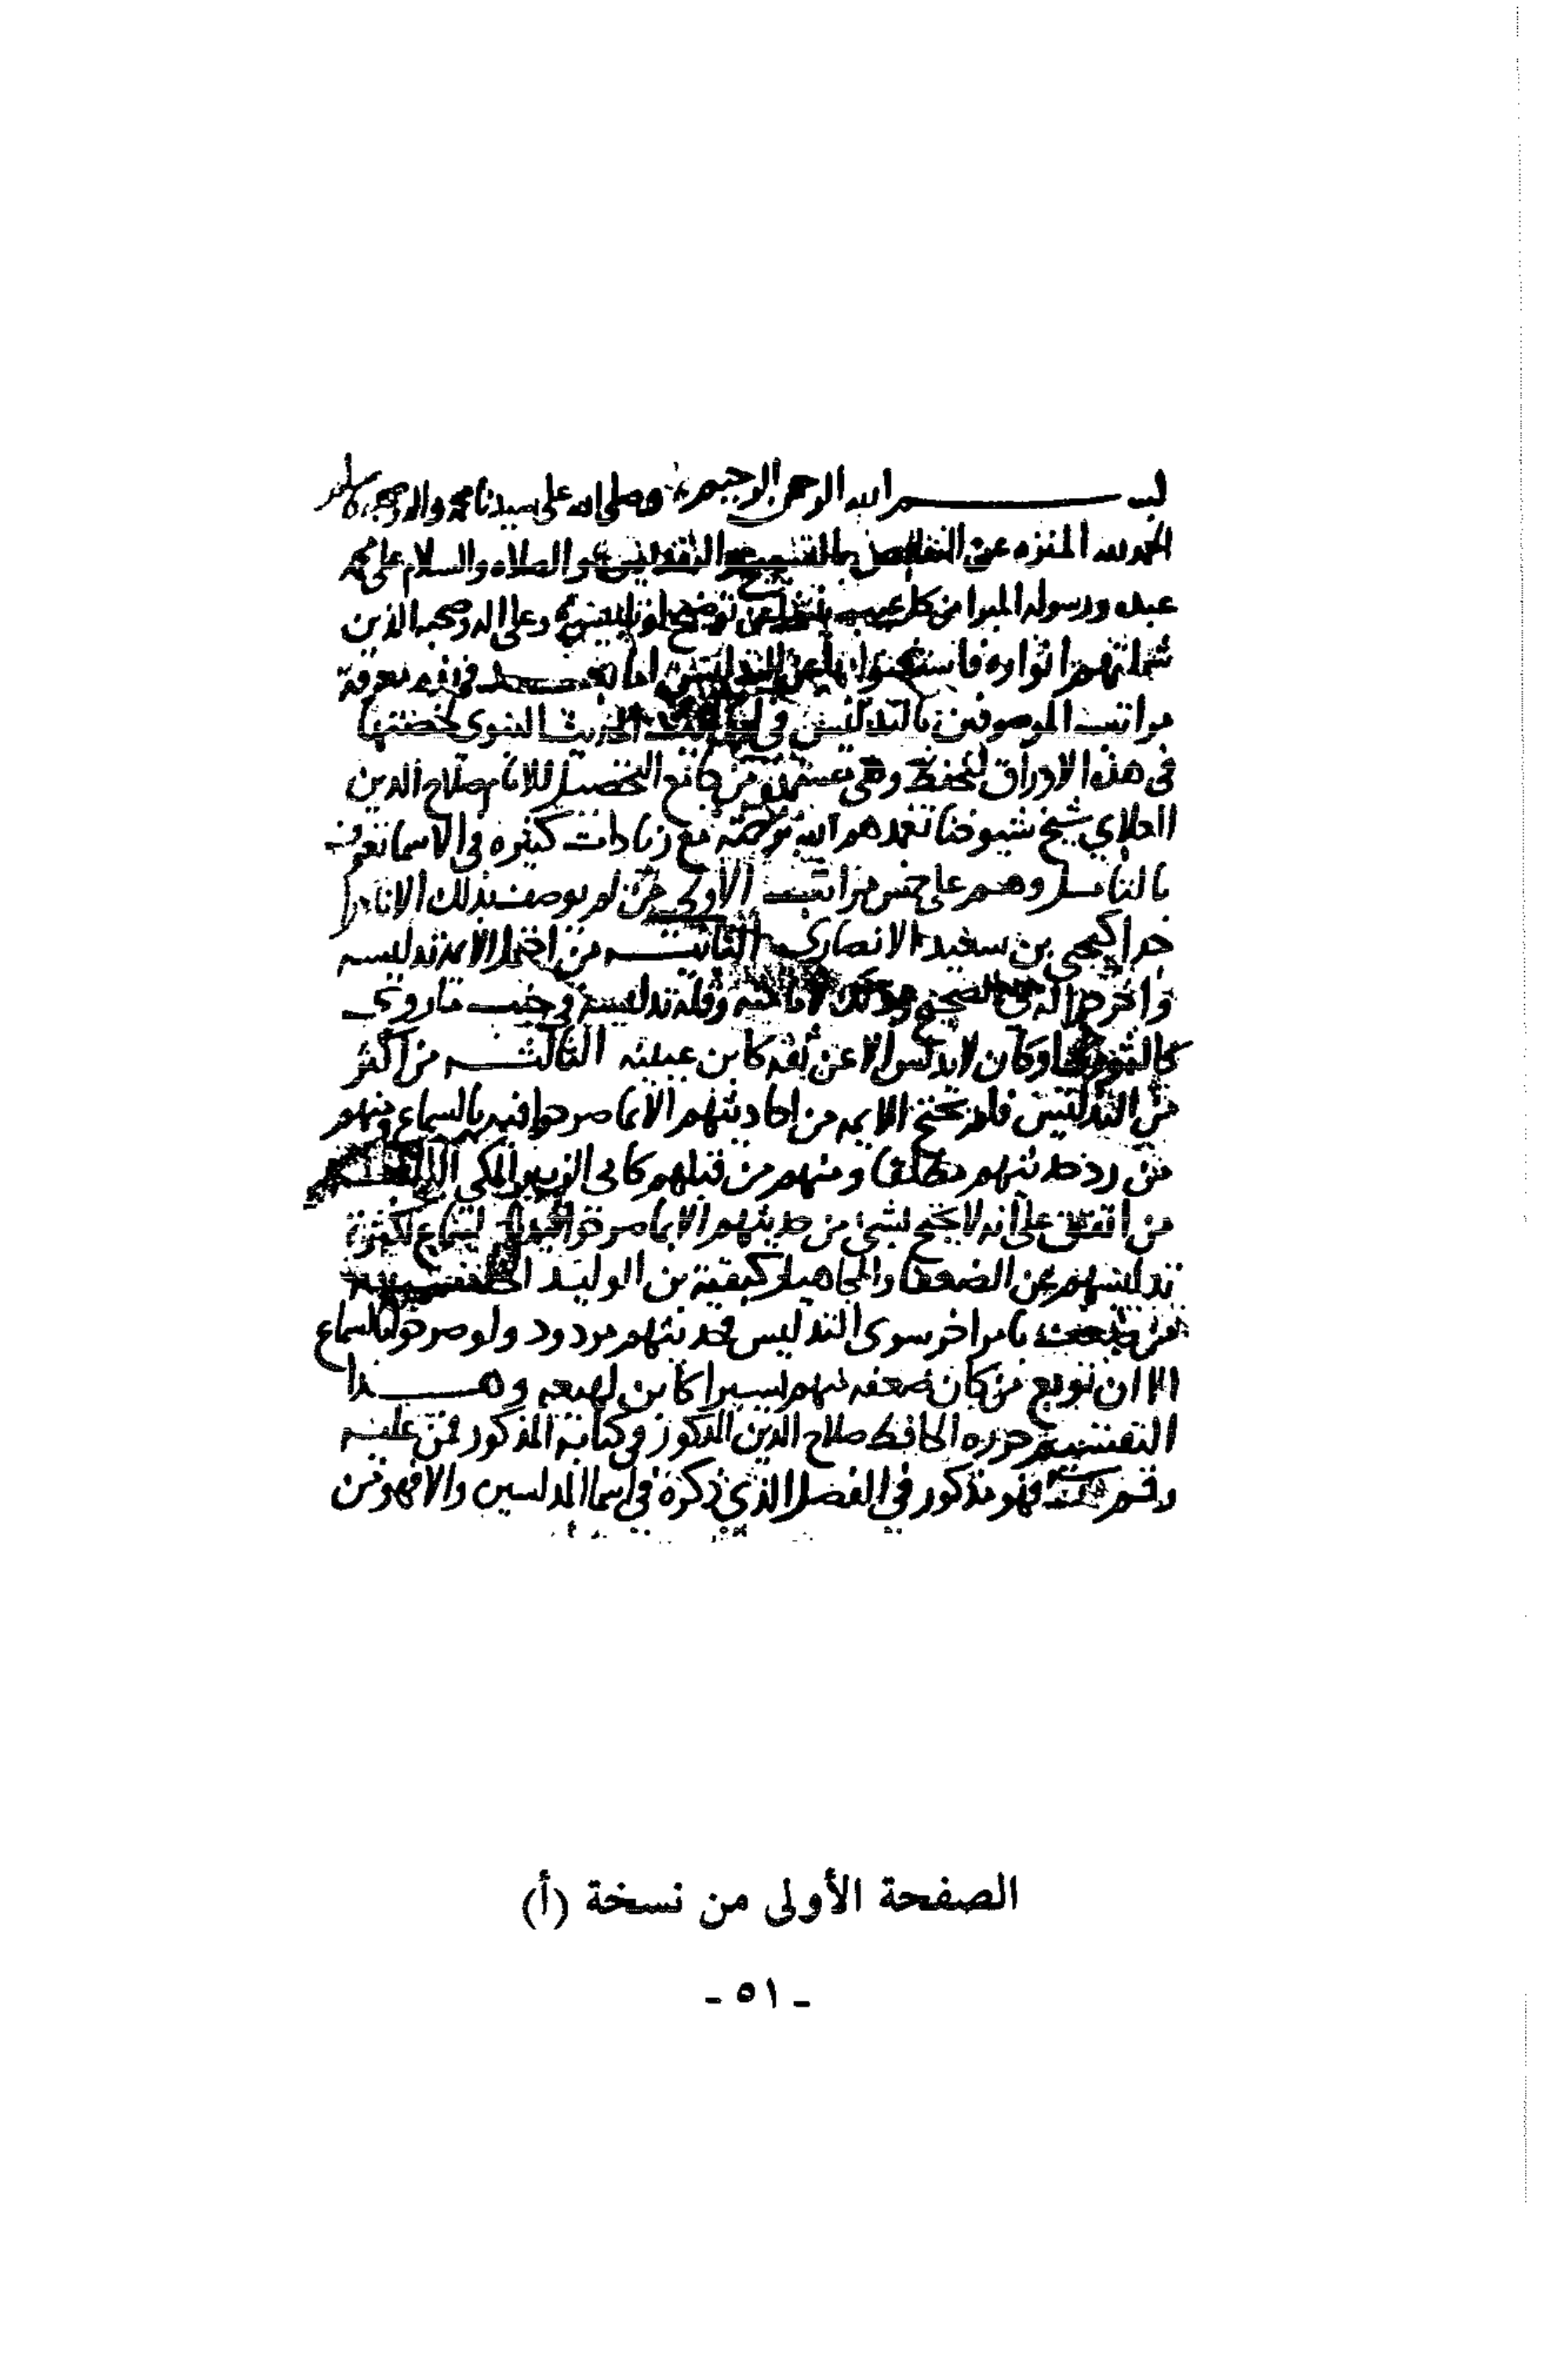 بسم الله الرحمن الرحيم وصلى الله على سيدنا محمد واله وصحبه وسلم
الحمد لله المنزه عن النقائص بالتسبيح والتقديس والصلاه والسلام على محمد
عبده ورسوله المبرا من كل عيب وعلى اله وصحبه الذين
شملتهم انواره فاستغنوا بها عن التدليس اما بعد فهذه معرفة
مراتب الموصوفين بالتدليس في الحديث النبوى لخصتها
فى هذه الاوراق لتحفظ وهى مستمده من جامع التحصيل للامام صلاح الدين
العلاي شيخ شيوخنا تغمدهم الله برحمته مع زيادات كثيره فى الاسما تعرف
بالتامل وهم على خمس مراتب الاولى من لم يوصف بذلك الا نادرا
جدا كيحيى بن سعيد الانصارى الثانيه من احتمل الايمه تدليسه
واخرجوا له فى الصحيح لامامته وقلة تدليسه فى جنب ما روى
كالثورى او كان لا يدلس الا عن ثقه كابن عيينه الثالثه من اكثر
من التدليس فلم يحتج الايمه من احاديثهم الا بما صرحوا فيه بالسماع ومنهم
من رد حديثهم مطلقا ومنهم من قبلهم كابى الزبير المكى الرابعه
من اتفق على انه لا يحتج بشي من حديثهم الا بما صرحوا فيه بالسماع لكثرة
تدليسهم عن الضعفا والمجاهيل كبقية بن الوليد الخامسه
من ضعف بامر اخر سوى التدليس فحديثهم مردود ولو صرحوا بالسماع
الا ان يوثق من كان ضعفه منهم يسيرا كابن لهيعه وهذا
التقسيم حرره الحافظ صلاح الدين المذكور فى كتابه المذكور فمن عليه
رقم فهو مذكور في الفصل الذي ذكره فى اسما المدلسين والا فهو من
الصفحة الأولى من نسخة (أ)
- ٥١ -